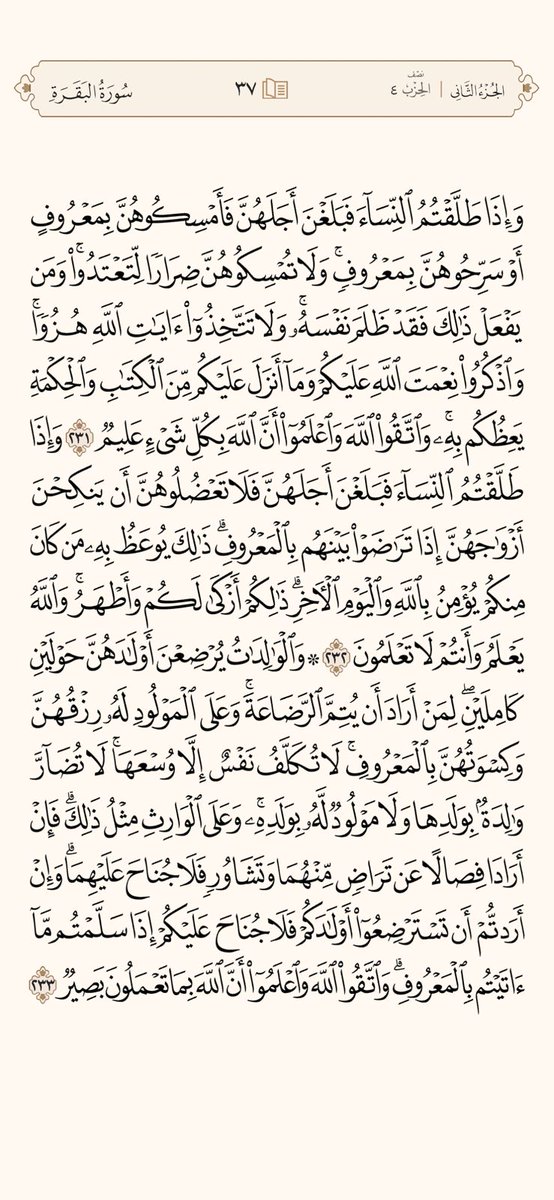 الجُزْءُ الثَّانِي | نصف الحِزْبُ ٤ ٣٧ سُورَةُ البَقَرَةِ
وَإِذَا طَلَّقْتُمُ ٱلنِّسَآءَ فَبَلَغْنَ أَجَلَهُنَّ فَأَمْسِكُوهُنَّ بِمَعْرُوفٍ
أَوْ سَرِّحُوهُنَّ بِمَعْرُوفٖۚ وَلَا تُمْسِكُوهُنَّ ضِرَارٗا لِّتَعْتَدُواْۚ وَمَن
يَفْعَلْ ذَٰلِكَ فَقَدْ ظَلَمَ نَفْسَهُۥۚ وَلَا تَتَّخِذُوٓاْ ءَايَٰتِ ٱللَّهِ هُزُوٗاۚ
وَٱذْكُرُواْ نِعْمَتَ ٱللَّهِ عَلَيْكُمْ وَمَآ أَنزَلَ عَلَيْكُم مِّنَ ٱلْكِتَٰبِ وَٱلْحِكْمَةِ
يَعِظُكُم بِهِۦۚ وَٱتَّقُواْ ٱللَّهَ وَٱعْلَمُوٓاْ أَنَّ ٱللَّهَ بِكُلِّ شَيْءٍ عَلِيمٞ ٢٣١ وَإِذَا
طَلَّقْتُمُ ٱلنِّسَآءَ فَبَلَغْنَ أَجَلَهُنَّ فَلَا تَعْضُلُوهُنَّ أَن يَنكِحْنَ
أَزْوَٰجَهُنَّ إِذَا تَرَٰضَوْاْ بَيْنَهُم بِٱلْمَعْرُوفِۗ ذَٰلِكَ يُوعَظُ بِهِۦ مَن كَانَ
مِنكُمْ يُؤْمِنُ بِٱللَّهِ وَٱلْيَوْمِ ٱلْأٓخِرِۗ ذَٰلِكُمْ أَزْكَىٰ لَكُمْ وَأَطْهَرُۚ وَٱللَّهُ
يَعْلَمُ وَأَنتُمْ لَا تَعْلَمُونَ ٢٣٢ ۞ وَٱلْوَٰلِدَٰتُ يُرْضِعْنَ أَوْلَٰدَهُنَّ حَوْلَيْنِ
كَامِلَيْنِۖ لِمَنْ أَرَادَ أَن يُتِمَّ ٱلرَّضَاعَةَۚ وَعَلَى ٱلْمَوْلُودِ لَهُۥ رِزْقُهُنَّ
وَكِسْوَتُهُنَّ بِٱلْمَعْرُوفِۚ لَا تُكَلَّفُ نَفْسٌ إِلَّا وُسْعَهَاۚ لَا تُضَآرَّ
وَٰلِدَةُۢ بِوَلَدِهَا وَلَا مَوْلُودٞ لَّهُۥ بِوَلَدِهِۦۚ وَعَلَى ٱلْوَارِثِ مِثْلُ ذَٰلِكَۗ فَإِنْ
أَرَادَا فِصَالًا عَن تَرَاضٖ مِّنْهُمَا وَتَشَاوُرٖ فَلَا جُنَاحَ عَلَيْهِمَاۗ وَإِنْ
أَرَدتُّمْ أَن تَسْتَرْضِعُوٓاْ أَوْلَٰدَكُمْ فَلَا جُنَاحَ عَلَيْكُمْ إِذَا سَلَّمْتُم مَّآ
ءَاتَيْتُم بِٱلْمَعْرُوفِۗ وَٱتَّقُواْ ٱللَّهَ وَٱعْلَمُوٓاْ أَنَّ ٱللَّهَ بِمَا تَعْمَلُونَ بَصِيرٞ ٢٣٣